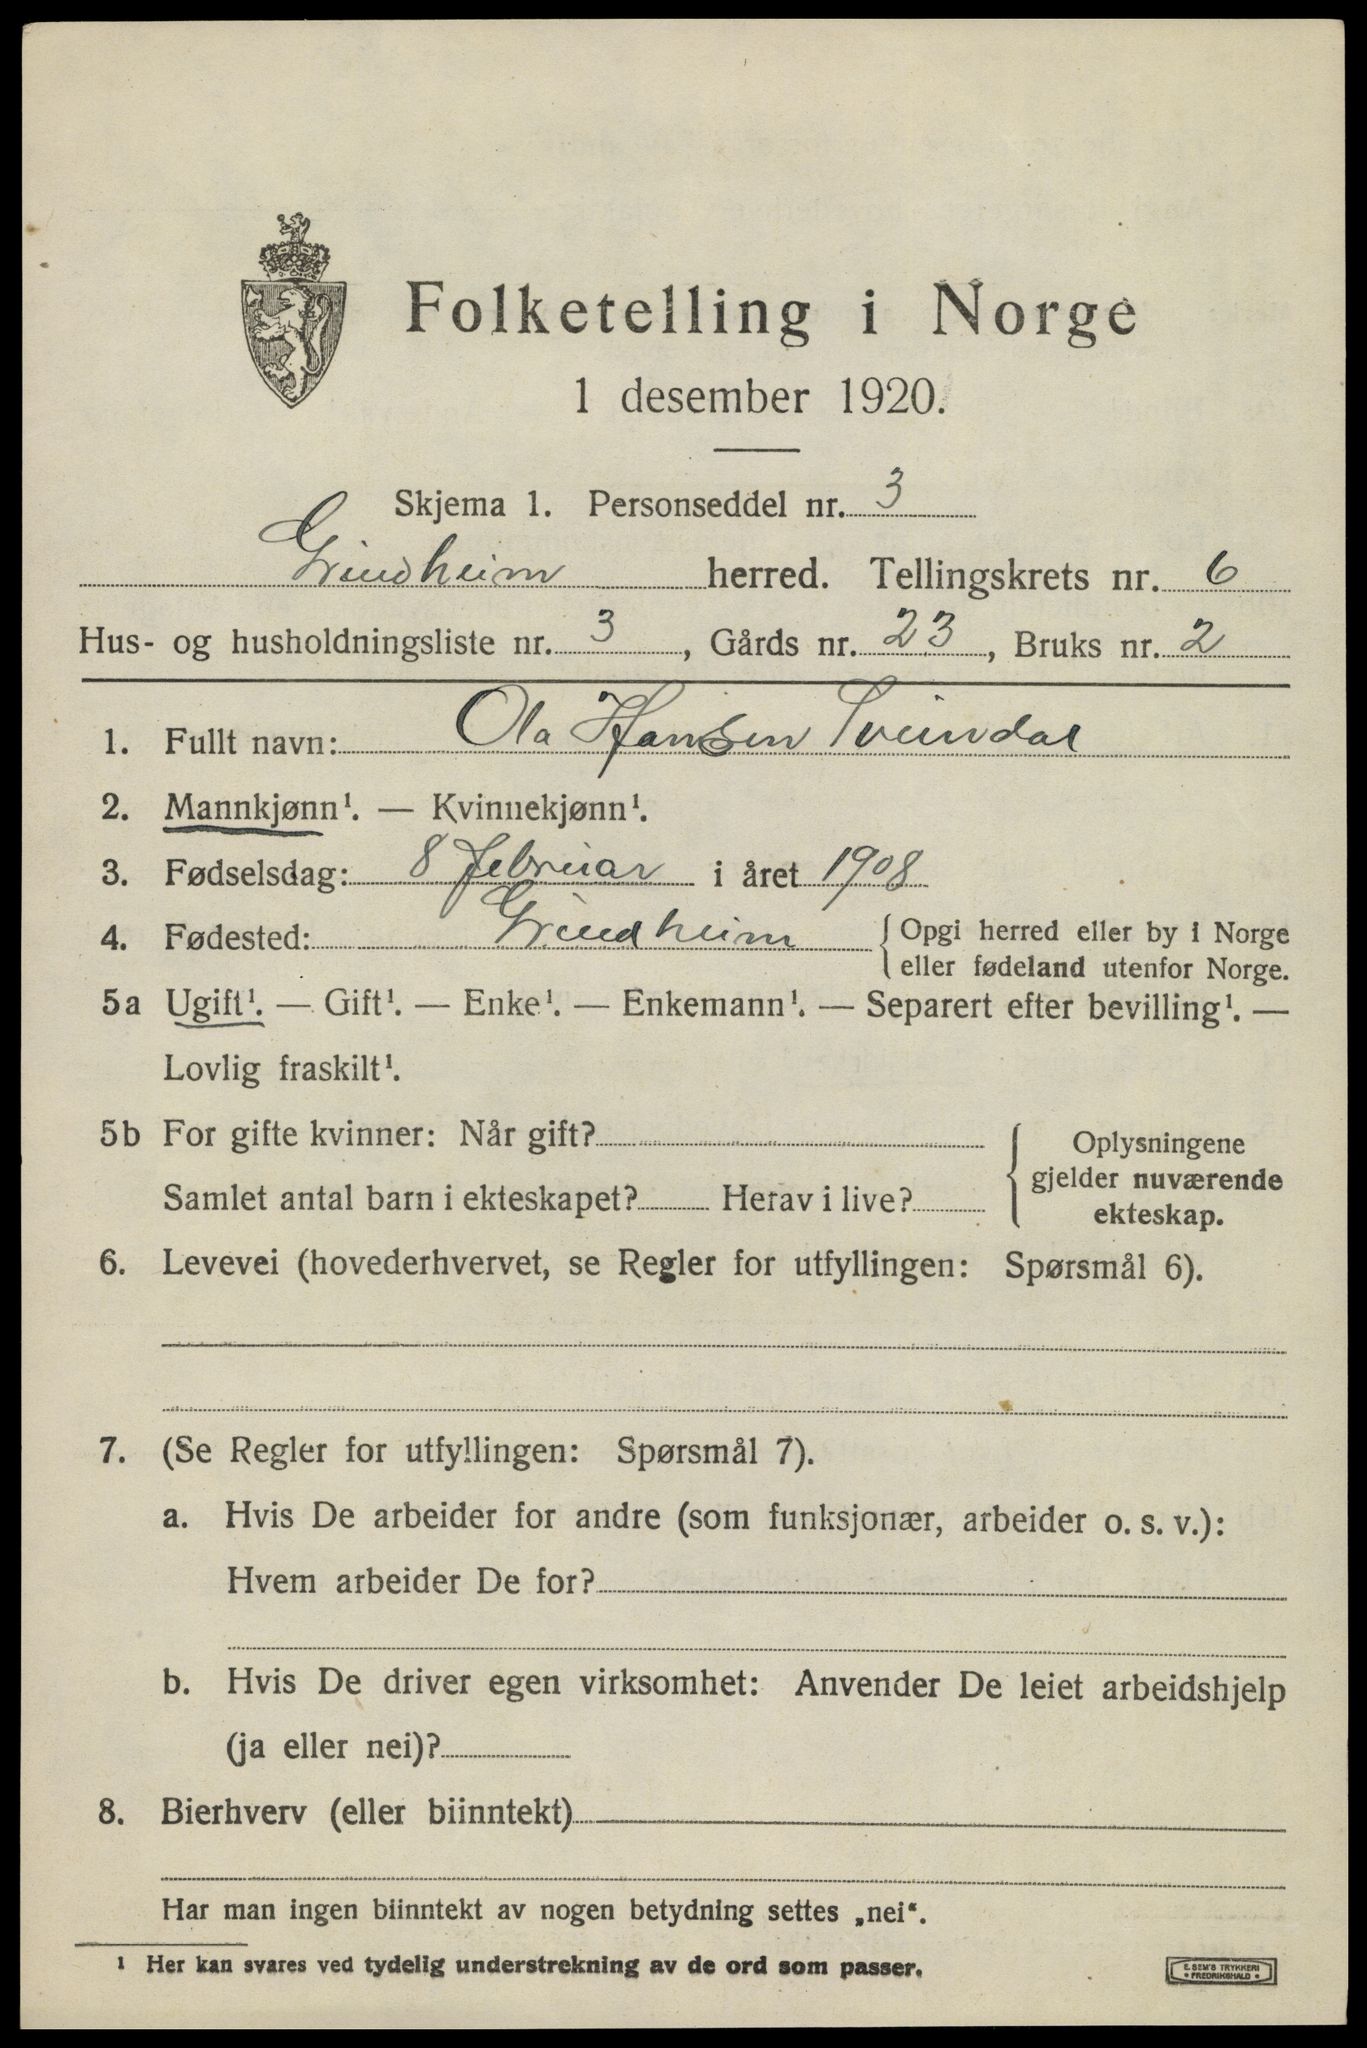 Folketelling i Norge
1 desember 1920.
Skjema 1. Personseddel nr. 3
Grindheim herred. Tellingskrets nr. 6
Hus- og husholdningsliste nr. 3, Gårds nr. 23, Bruks nr. 2
1. Fullt navn: Ola Hansen Tveindal
2. Mannkjønn¹. — Kvinnekjønn¹.
3. Fødselsdag: 8 februar i året 1908
4. Fødested: Grindheim { Opgi herred eller by i Norge
eller fødeland utenfor Norge.
5a Ugift¹. — Gift¹. — Enke¹. — Enkemann¹. — Separert efter bevilling¹. —
Lovlig fraskilt¹.
5b For gifte kvinner: Når gift?
Samlet antal barn i ekteskapet? Herav i live?
{ Oplysningene
gjelder nuværende
ekteskap.
6. Levevei (hovederhvervet, se Regler for utfyllingen: Spørsmål 6).
7. (Se Regler for utfyllingen: Spørsmål 7).
a. Hvis De arbeider for andre (som funksjonær, arbeider o. s. v.):
Hvem arbeider De for?
b. Hvis De driver egen virksomhet: Anvender De leiet arbeidshjelp
(ja eller nei)?
8. Bierhverv (eller biinntekt)
Har man ingen biinntekt av nogen betydning settes „nei“.
¹ Her kan svares ved tydelig understrekning av de ord som passer.
E. SEM'S TRYKKERI
• FREDRIKSHALD •